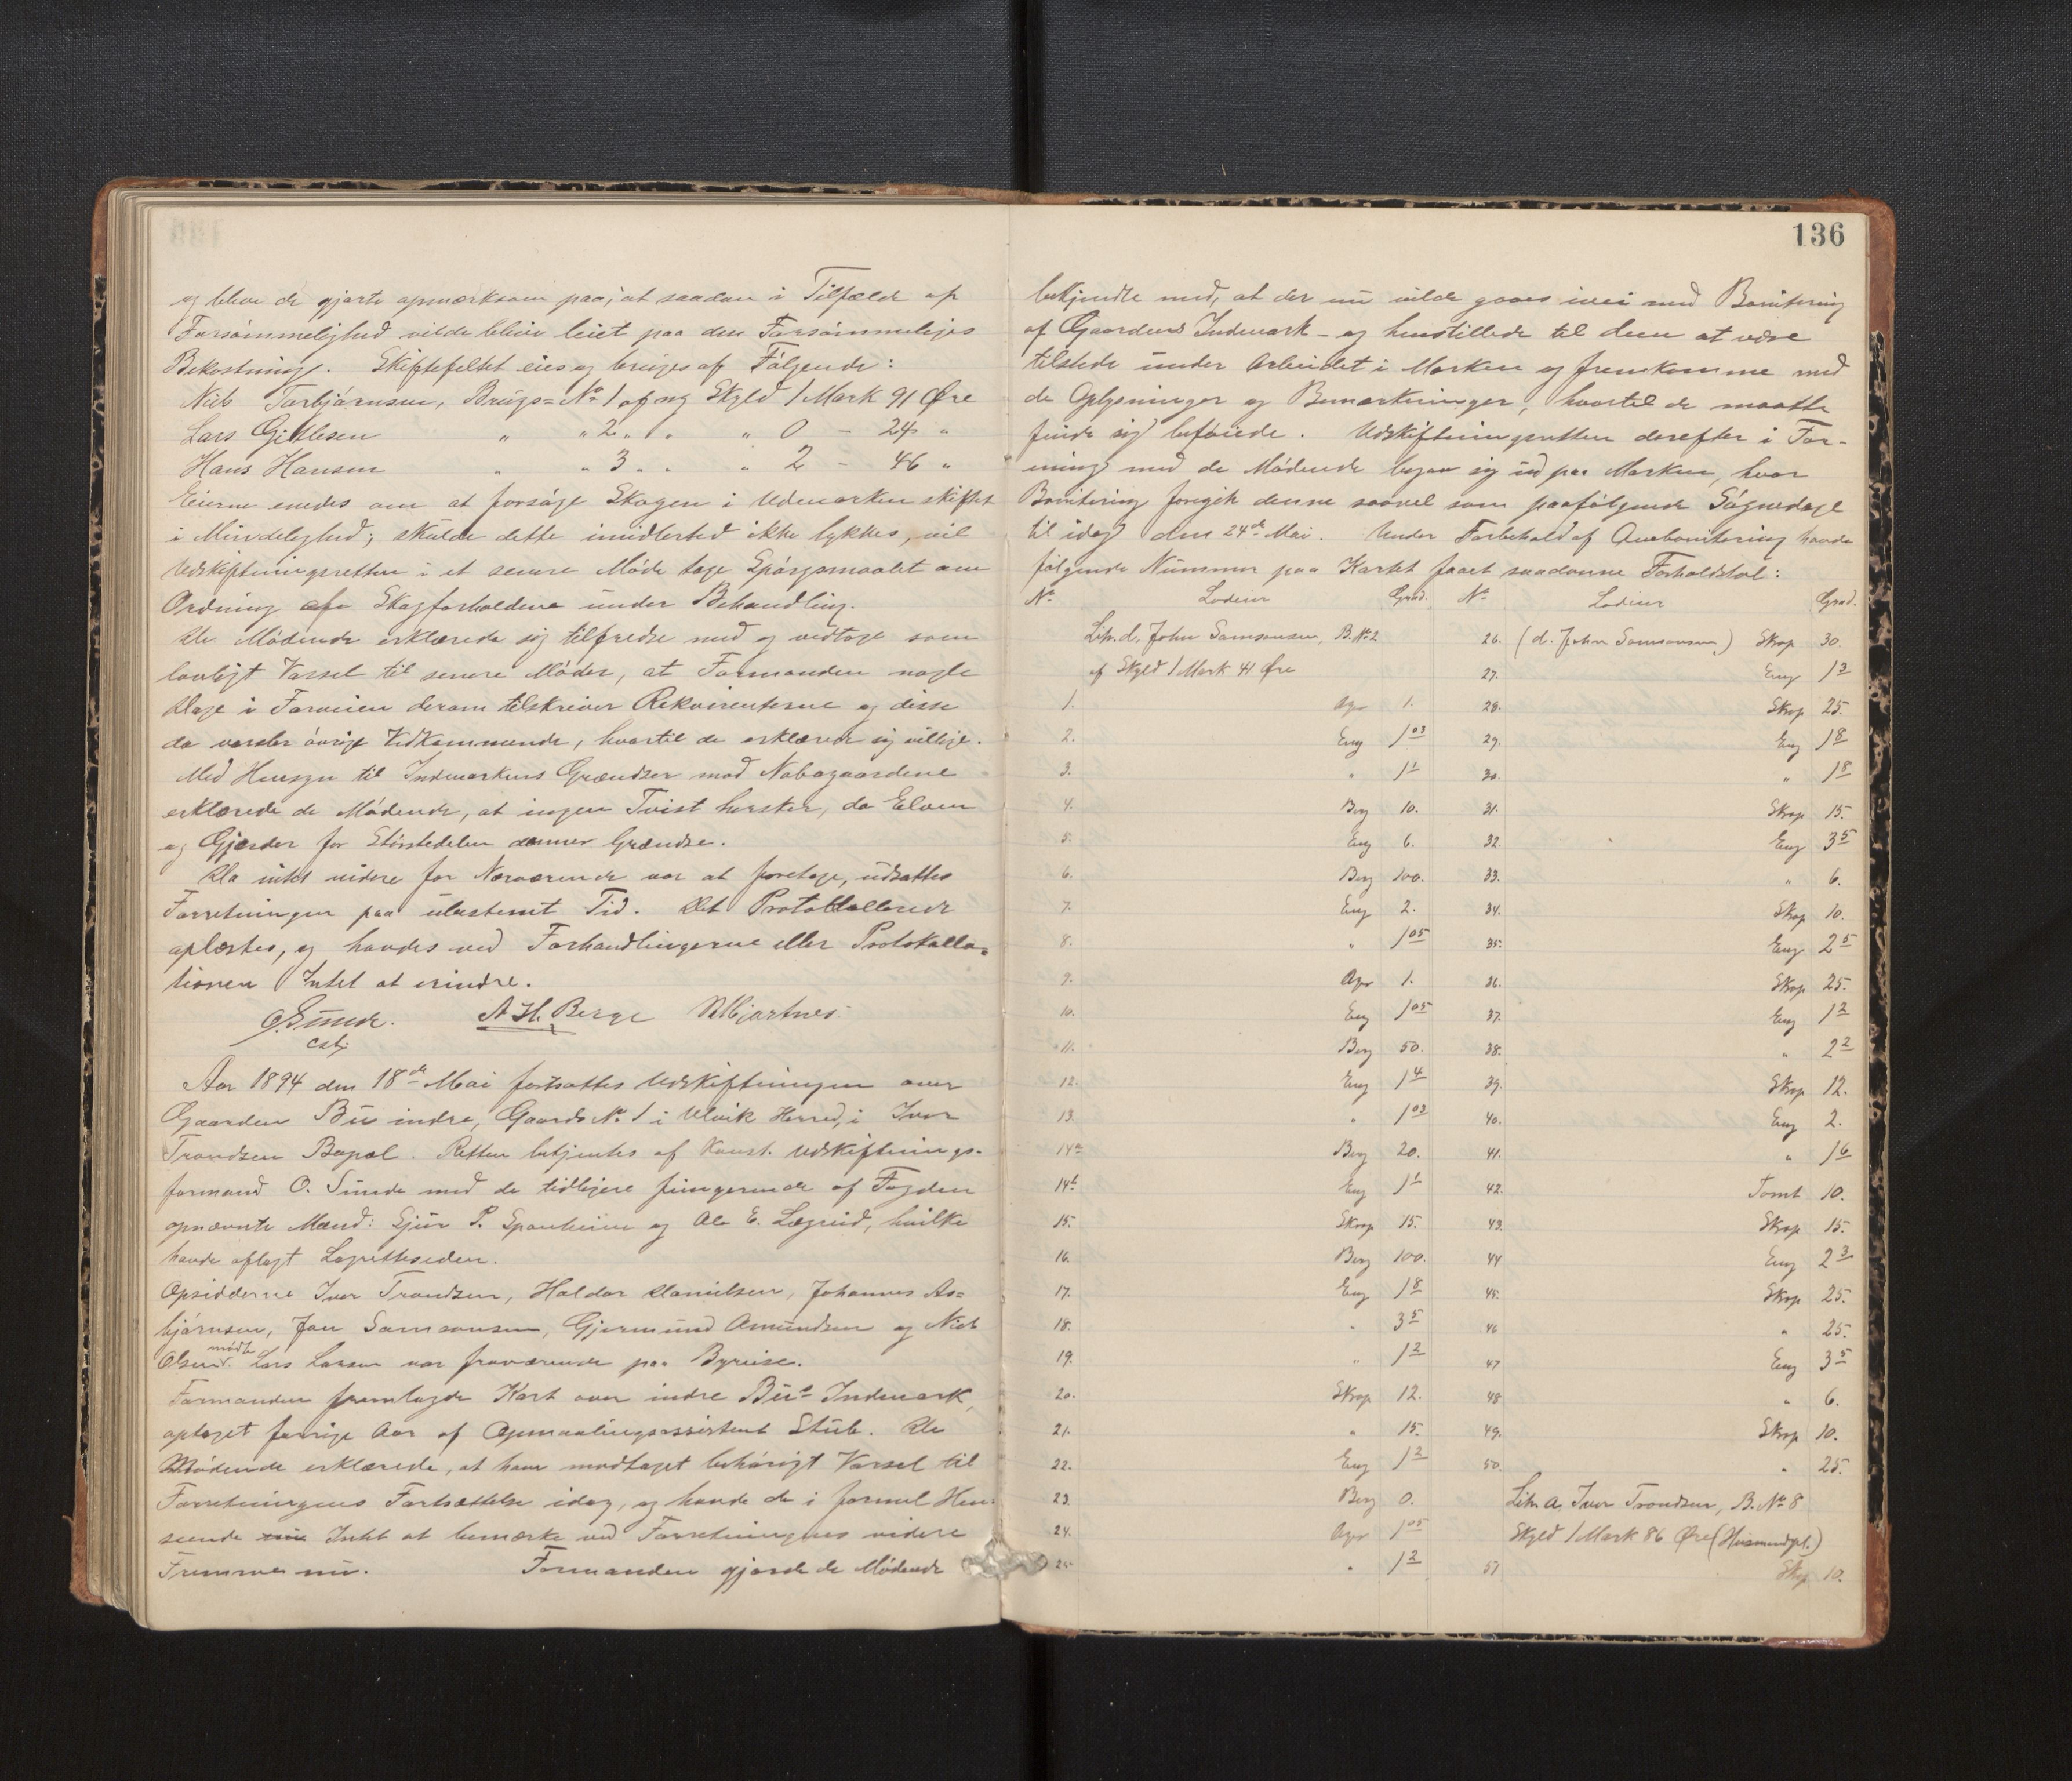 og bleve de gjorte opmærksom paa, at saadan i Tilfælde af
Forsømmelighed vilde blive leiet paa den Forsømmeliges
Bekostning. Skiftefeltet eies og bruges af Følgende:
Niels Torbjørnsen, Brugs-No 1 af ny Skyld 1 Mark 91 Øre
Lars Gjetlesen " " 2 " " " 0 – 24 "
Hans Hansen " " 3 " " " 2 – 46 "
Eierne enedes om at forsøge Skogen i Udmarken skiftet
i Mindelighed; skulde dette imidlertid ikke lykkes, vil
Udskiftningsretten i et senere Møde tage Spørgsmaalet om
Ordning af Skogforholdene under Behandling.
De Mødende erklærede sig tilfredse med og vedtoge som
lovligt Varsel til senere Møder, at Formanden nogle
Dage i Forveien derom tilskriver Rekvirenterne og disse
da varsler øvrige Vedkommende, hvortil de erklærede sig villige.
Med Hensyn til Indmarkens Grændser mod Nabogaardene
erklærede de Mødende, at ingen Tvist hersker, da Elven
og Gjerder for Størstedelen danner Grændse.
Da intet videre for Nærværende var at foretage, udsattes
Forretningen paa ubestemt Tid. Det Protokollerede
oplæstes, og havdes ved Forhandlingerne eller Protokolla-
tionen Intet at erindre.
O. Sunde. A H. Berge Mjartnes.
cst.
Aar 1894 den 18de Mai fortsattes Udskiftningen over
Gaarden Bu indre, Gaards No 1 i Ulvik Herred, i Iver
Trondsen Bopæl. Retten betjentes af Konst. Udskiftnings-
formand O. Sunde med de tidligere fungerende af Fogden
opnævnte Mænd: Sjur P. Sponheim og Ole E. Lægreid, hvilke
havde aflagt Lagretteseden.
Opsidderne Iver Trondsen, Haldor Danielsen, Johannes As-
bjørnsen, Jon Samsonsen, Gjermund Amundsen og Niels
Olsen mødte. Lars Larsen var fraværende paa Byreise.
Formanden fremlagde Kart over indre Bu's Indmark,
optaget forrige Aar af Opmaalingsassistent Stub. De
Mødende erklærede, at have modtaget behørigt Varsel til
Forretningens Fortsættelse idag, og havde de i formel Hen-
seende Intet at bemærke ved Forretningens videre
Fremme nu. Formanden gjorde de Mødende
136
bekjendte med, at der nu vilde gaaes ivei med Bonitering
af Gaardens Indmark – og henstillede til dem at være
tilstede under Arbeidet i Marken og fremkomme med
de Oplysninger og Bemærkninger, hvortil de maatte
finde sig beføiede. Udskiftningsretten derefter i For-
ening med de Mødende begav sig ud paa Marken, hvor
Bonitering foregik denne saavel som paafølgende Søgnedage
til idag den 24de Mai. Under Forbehold af Ombonitering havde
følgende Nummer paa Kartet faaet saadanne Forholdstal:
No Lodeier Grad. No Lodeier Grad.
Litr. d. John Samsonsen, B. No 2 26. (d. John Samsonsen) Skog 30.
af Skyld 1 Mark 41 Øre 27. Eng 1 3
1. Ager 1. 28. Skog 25.
2. Eng 1 03 29. Eng 1 8
3. " 1 1 30. " 1 8
4. Berg 10. 31. Skog 15.
5. Eng 6. 32. Eng 3 5
6. Berg 100. 33. " 6.
7. Eng 2. 34. Skog 10.
8. " 1 05 35. Eng 2 5
9. Ager 1. 36. Skog 25.
10. Eng 1 05 37. Eng 1 2
11. Berg 50. 38. " 2 2
12. Eng 1 4 39. Skog 12.
13. " 1 03 40. Eng 2.
14a Berg 20. 41. " 1 6
14b Eng 1 1 42. Tomt 10.
15. Skog 15. 43. Skog 15.
16. Berg 100. 44 Eng 2 3
17. Eng 1 8 45. Skog 25.
18. " 3 5 46 " 25.
19. " 1 2 47 Eng 3 5
20. Skog 12. 48 " 6.
21. " 15. 49. Skog 10.
22. Eng 1 2 50. " 25.
23. Berg 0. Litr. a, Iver Trondsen, B. No 8
24. Ager 1 05 Skyld 1 Mark 86 Øre (Husmandspl.)
25 " 1 2 51 Skog 10.